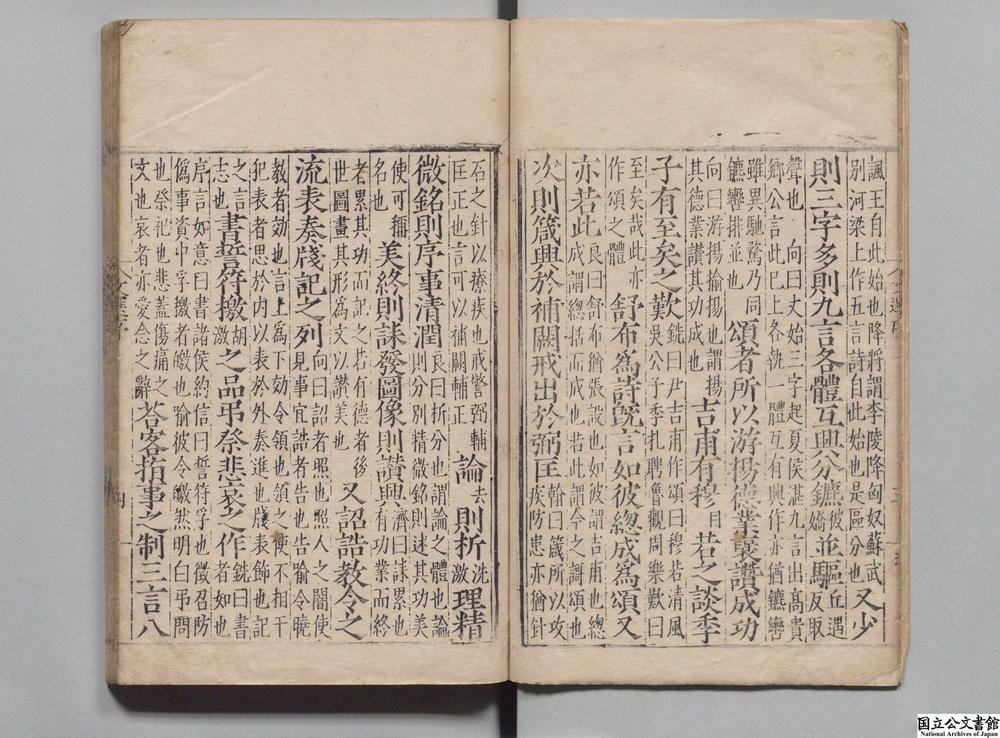 諷王自此始也降將謂李陵降匈奴蘇武
別河梁上作五言詩自此始也是區分也
又少
則三字多則九言各體互興分鑣彼嬌並驅丘遇反取
聲也 向曰文始三字起夏侯湛九言出高貴
鄉公言此已上各執一體互有興作亦猶鑣轡
雖異馳騖乃同
鑣轡排並也
頌者所以游揚德業襃讚成功
向曰游揚揄揚也謂揚
其德業讚其功成也
吉甫有穆目若之談季
子有至矣之歎
銑曰尹吉甫作頌曰穆若清風
吳公子季札聘魯觀周樂歎曰
至矣哉此亦
作頌之體
舒布為詩旣言如彼總成為頌又
亦若此
良曰舒布猶張設也如彼謂吉甫也總
成謂總括而成也若此謂今之謌頌也
次則箴興於補闕戒出於弼匡
翰曰箴所以攻
疾防患亦猶針
石之針以療疾也戒警弼輔
匡正也言可以補闕輔正
論去則析洗激理精
微銘則序事清潤
良曰析分也謂論之體也論
則分別精微銘則述其功美
使可稱
名也
美終則誄發圖像則讚興
濟曰誄累也
有功業而終
者累其功而記之若有德者後
世圖畫其形為文以讚美也
又詔誥教令之
流表奏牋記之列
向曰詔者照也照人之闇使
見事宜誥者告也告喻令曉
教者効也言上為下効令領也領之使不相干
犯表者思於內以表於外奏進也牋表飾也記
之言
志也
書誓符檄胡激之品弔祭悲哀之作
銑曰書
者如也
序言如意曰書諸侯約信曰誓符孚也徵召防
偽事資中孚檄者皦也喻彼令皦然明白弔問
也祭祀也悲蓋傷痛之
文也哀者亦愛念之辭
荅客指事之制三言八
四
国立公文書館
National Archives of Japan